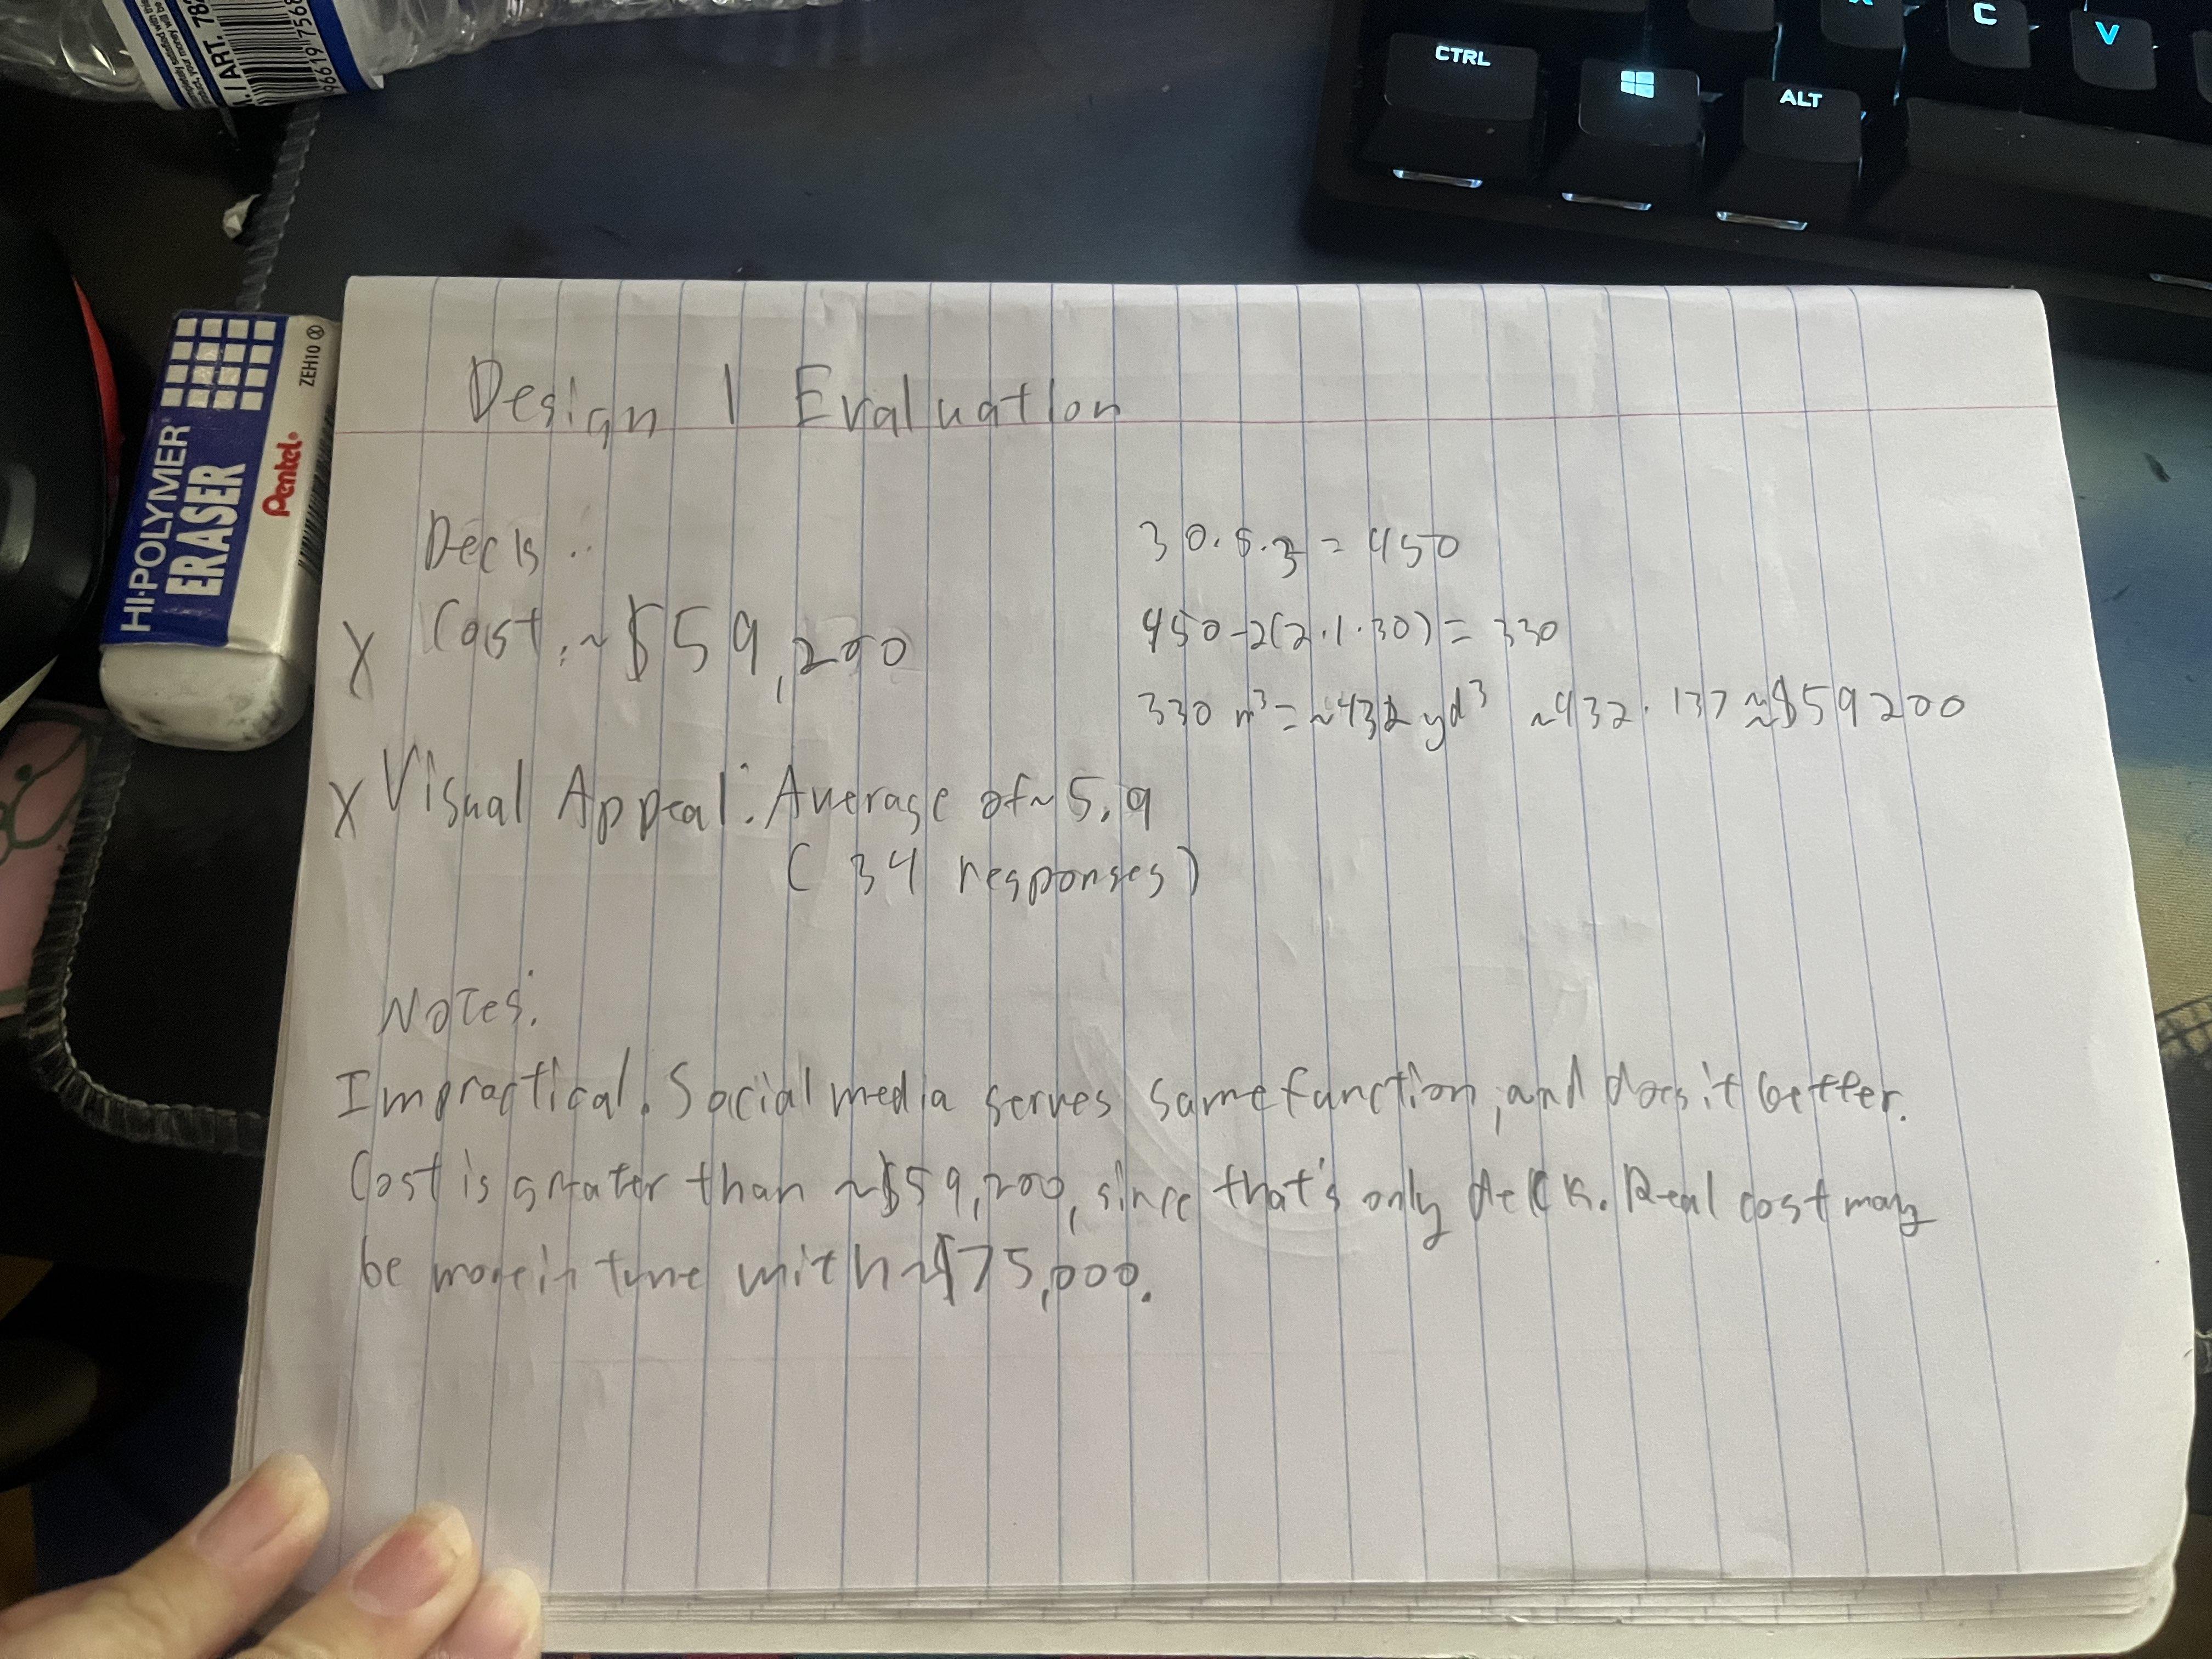 Design 1 Evaluation
Deck:
30.5.3 = 450
X Cost: ~$59,200
450-2(2.1.30) = 330
330 m³ = ~432 yd³ ~432.137 ≈ $59200
X Visual Appeal: Average of ~5.9
(34 responses)
Notes:
Impractical. Social media serves same function, and does it better.
Cost is greater than ~$59,200, since that's only deck. Real cost may
be more in tune with ~$75,000.
HI-POLYMER
ERASER
Pentel
ZEH10
CTRL
ALT
C
V
ART.